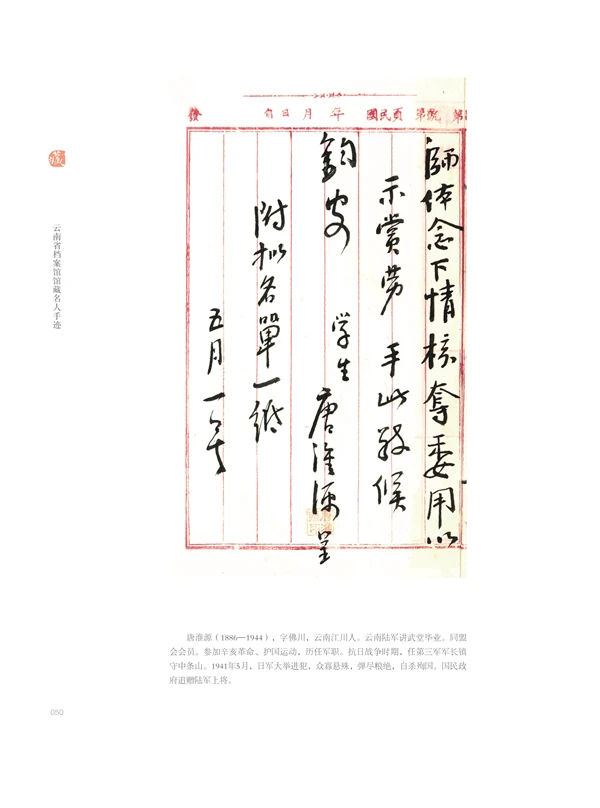 第 號第 頁民國 年 月 日
師体念下情核奪委用以
示賞劳 手此敬候
鈞安 学生唐淮源呈
附拟名單一紙
五月一
藏
云南省档案馆馆藏名人手迹
唐淮源（1886—1944），字佛川，云南江川人。云南陆军讲武堂毕业。同盟
会会员。参加辛亥革命、护国运动，历任军职。抗日战争时期，任第三军军长镇
守中条山。1941年5月，日军大举进犯，众寡悬殊，弹尽粮绝，自杀殉国。国民政
府追赠陆军上将。
050